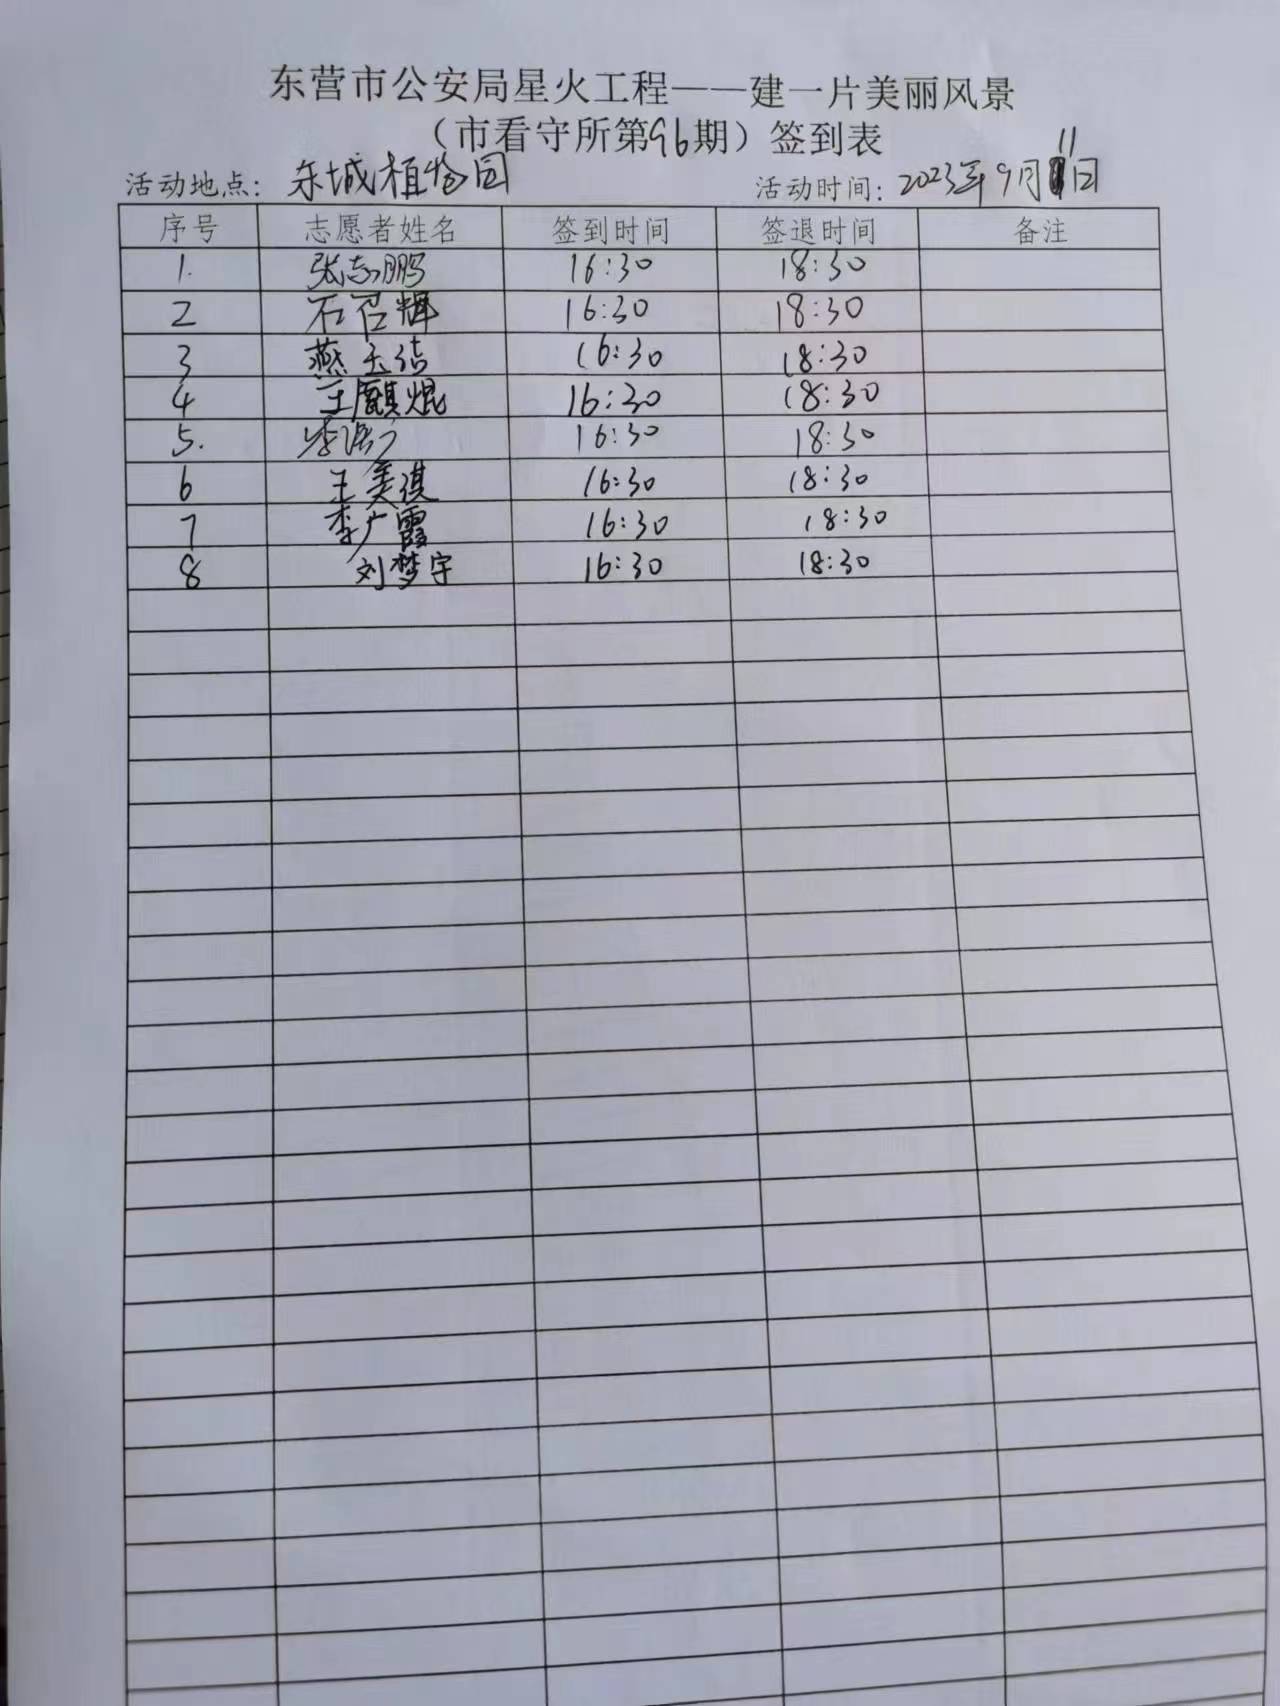 东营市公安局星火工程——建一片美丽风景
（市看守所第96期）签到表
活动地点：东城植物园 活动时间：2023年9月11日
序号 志愿者姓名 签到时间 签退时间 备注
1. 张志鹏 16:30 18:30
2 石召辉 16:30 18:30
3 燕玉洁 16:30 18:30
4 王麒焜 16:30 18:30
5. 李 16:30 18:30
6 王美淇 16:30 18:30
7 李广霞 16:30 18:30
8 刘梦宇 16:30 18:30